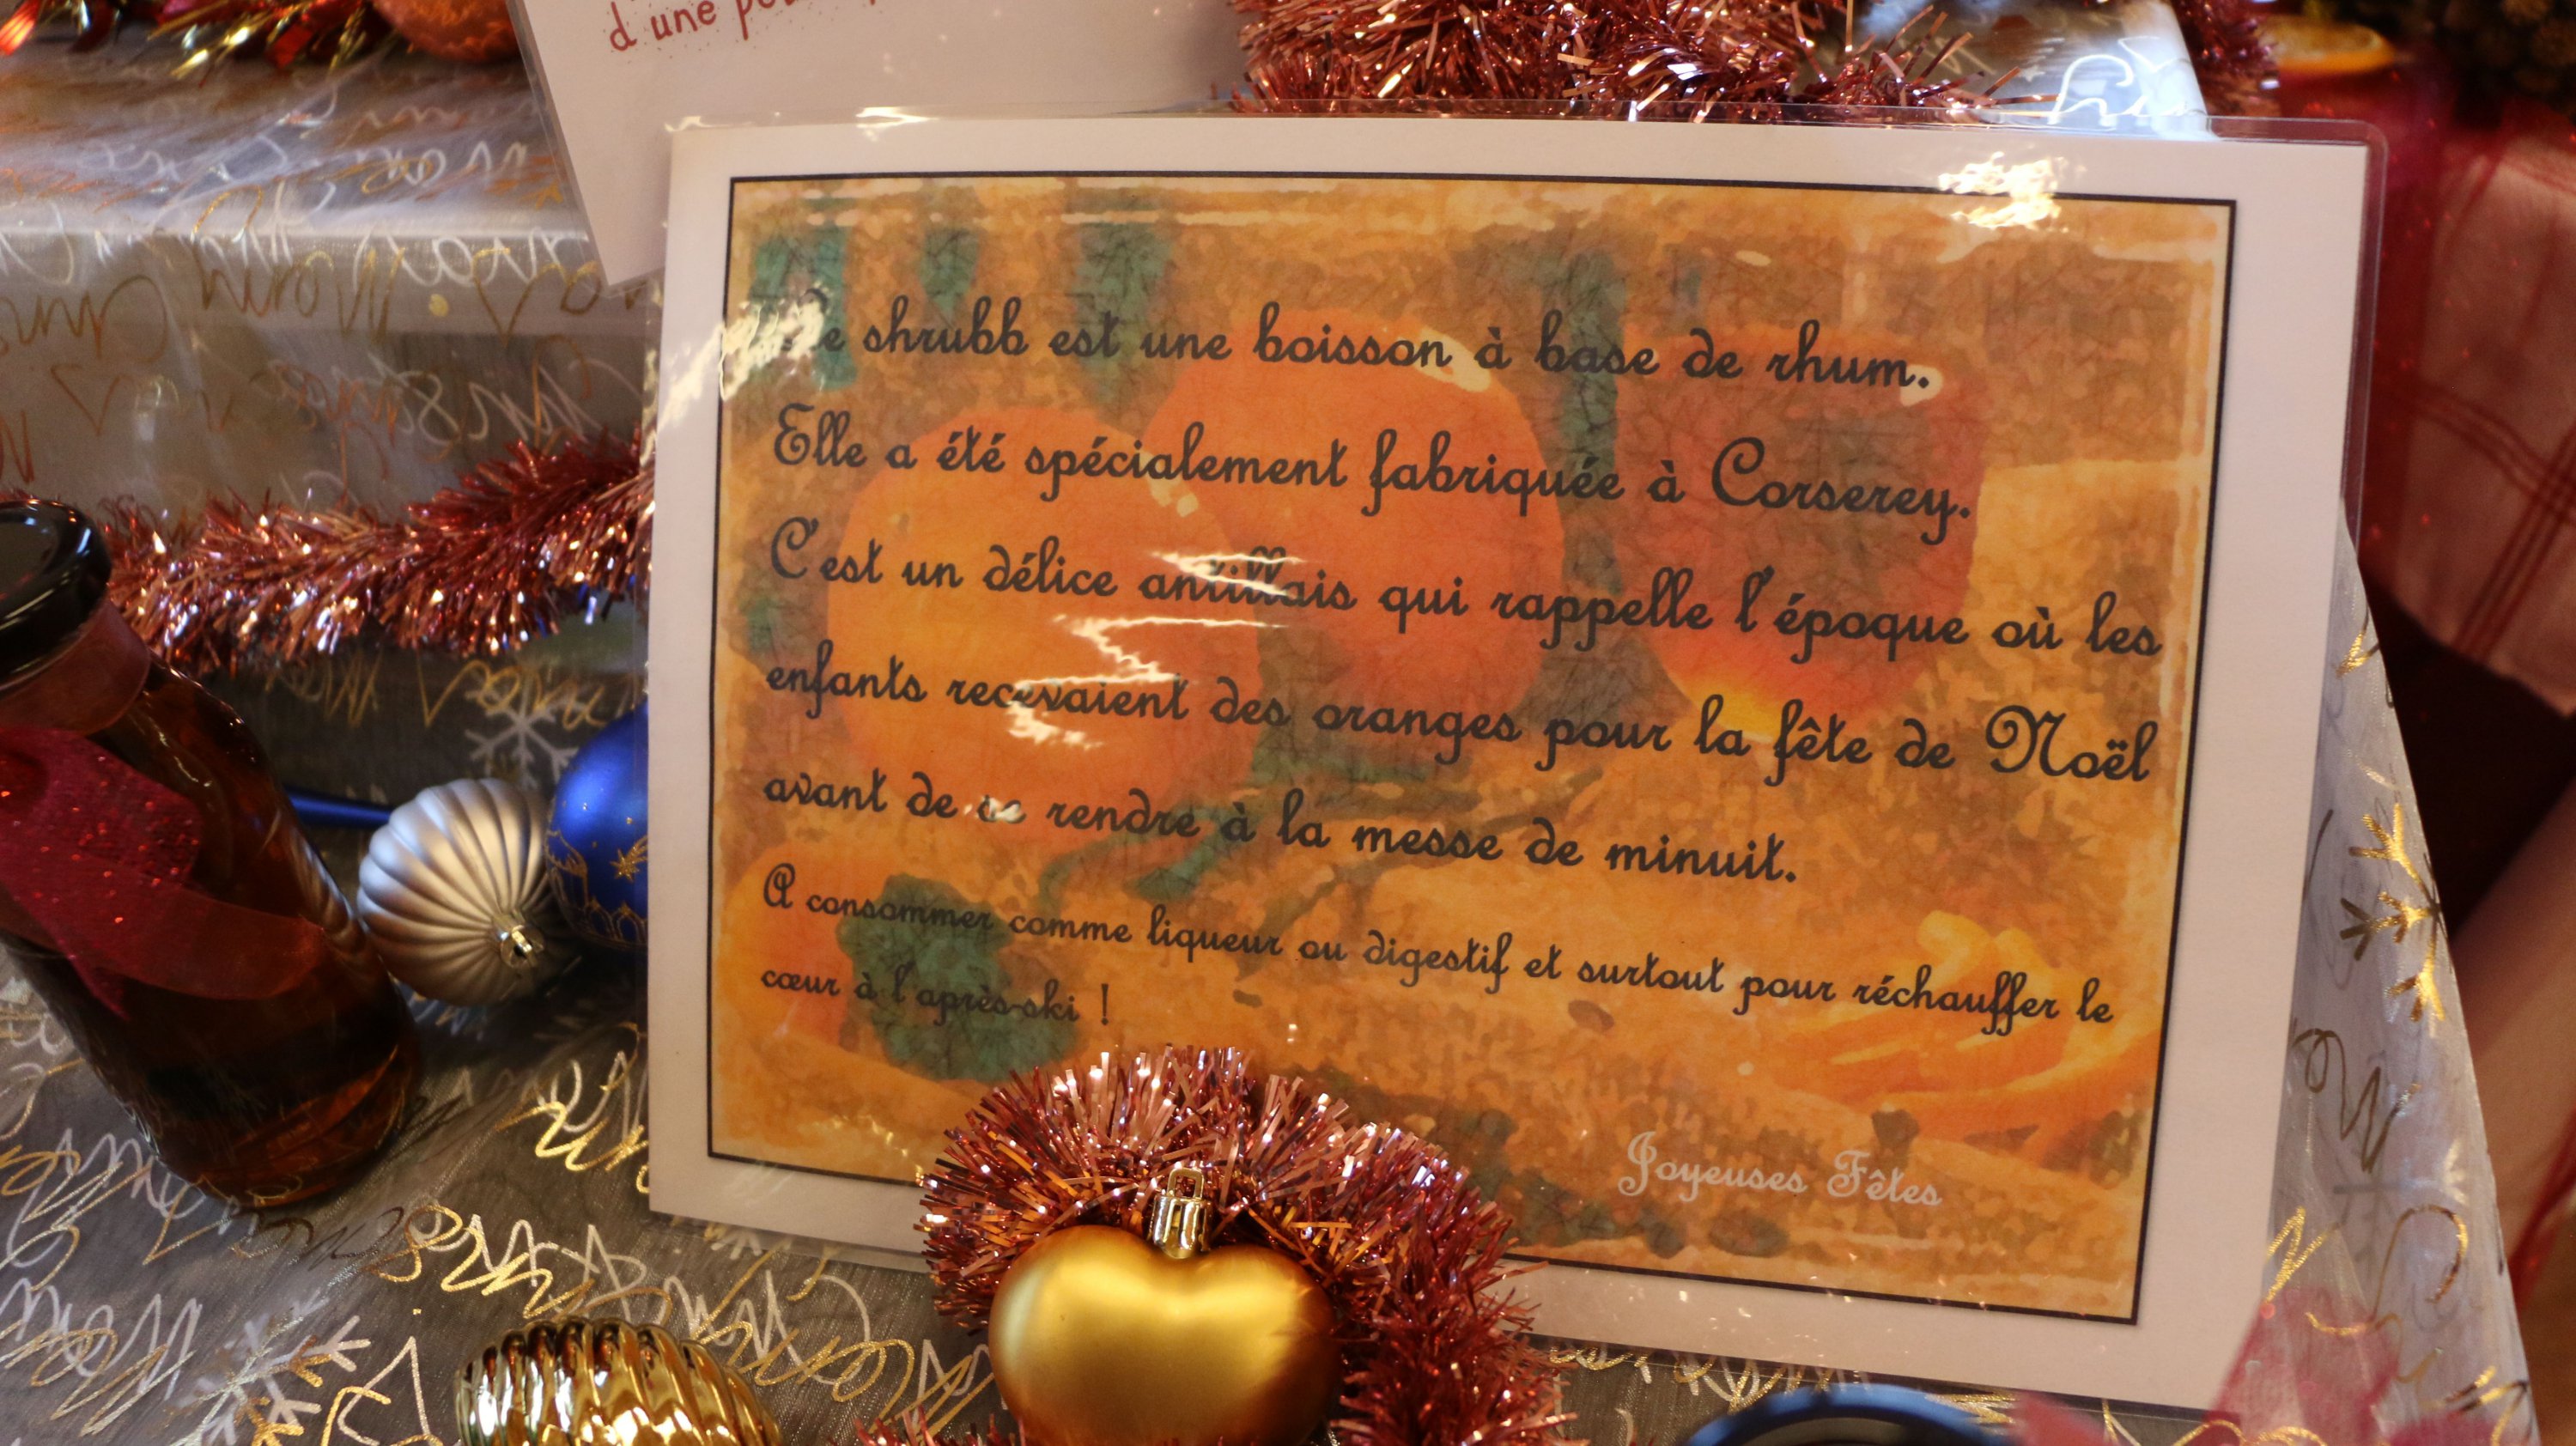 d'une
Le shrubb est une boisson à base de rhum.
Elle a été spécialement fabriquée à Corserey.
C'est un délice antillais qui rappelle l'époque où les
enfants recevaient des oranges pour la fête de Noël
avant de se rendre à la messe de minuit.
A consommer comme liqueur ou digestif et surtout pour réchauffer le
cœur à l'après-ski !
Joyeuses Fêtes